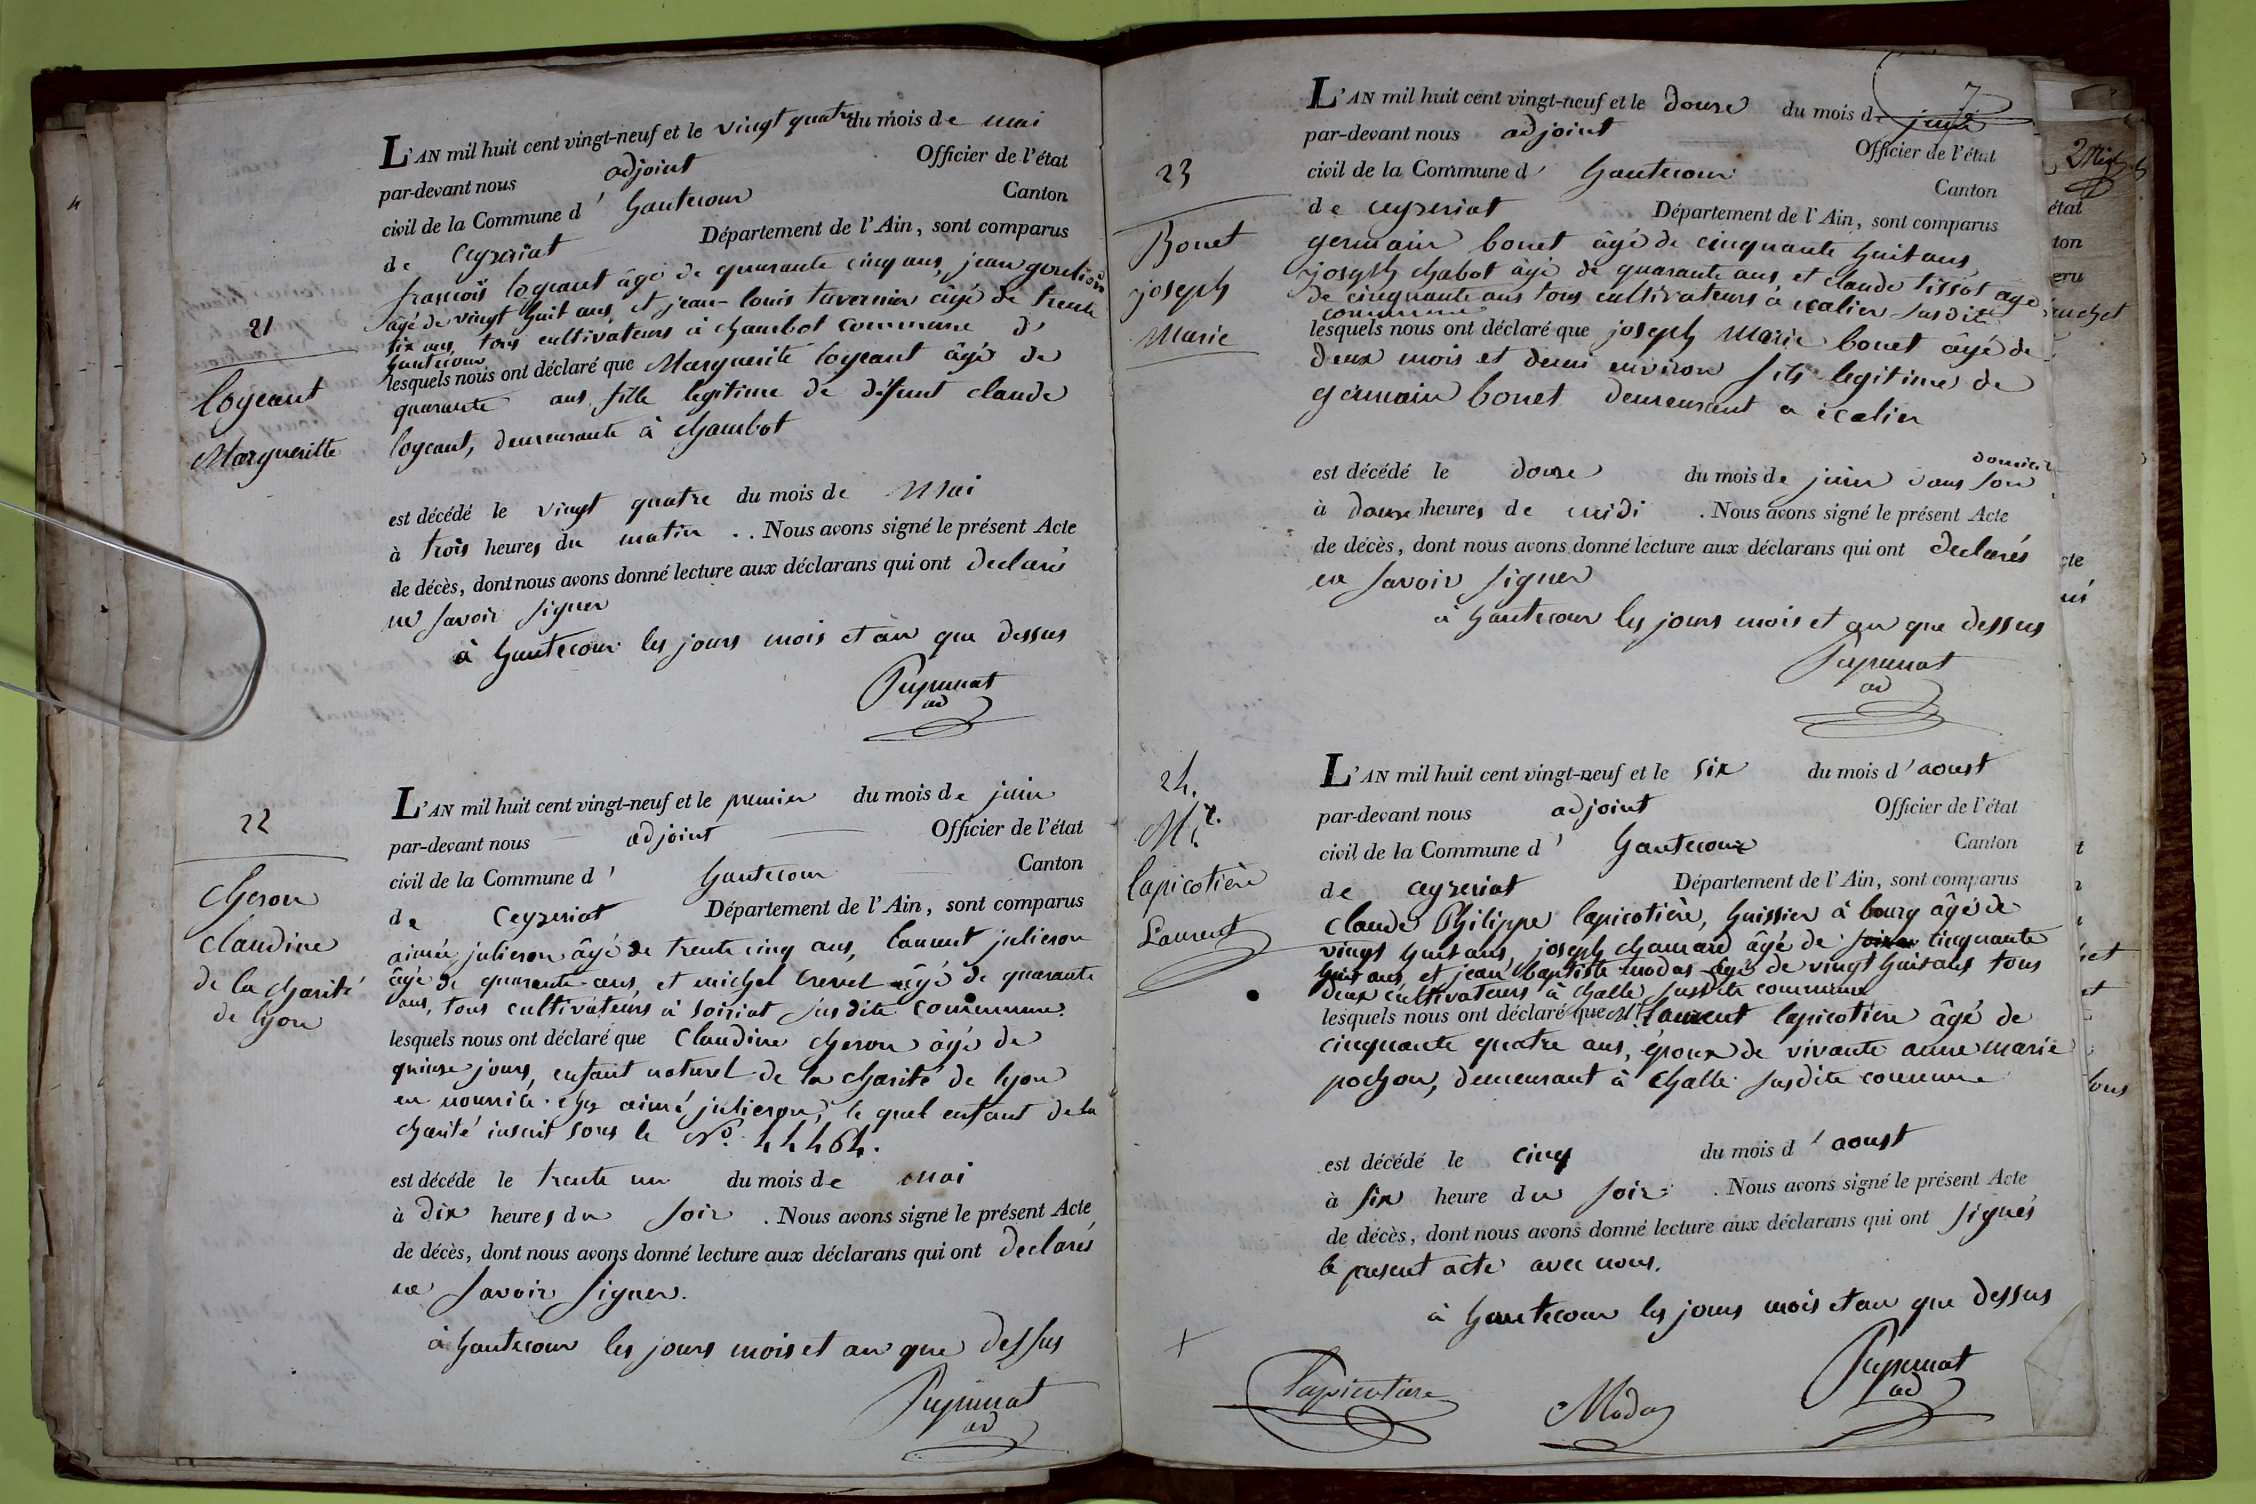 4
L'AN mil huit cent vingt-neuf et le vingt quatre du mois de mai
par-devant nous adjoint Officier de l'état
civil de la Commune d' hautecour Canton
de Ceyzeriat Département de l'Ain, sont comparus
francois logeant âgé de quarante cinq ans, jean
âgé de vingt huit ans, et jean-louis tavernier âgé de trente
six ans, tous cultivateurs à chambot commune d'
hautecour
21
lesquels nous ont déclaré que Marguerite logeant âgé de
logeant
quarante ans fille legitime de défunt claude
Margueritte
logeant, demeurante à chambot
est décédé le vingt quatre du mois de Mai
à trois heures du matin . . Nous avons signé le présent Acte
de décès, dont nous avons donné lecture aux déclarans qui ont declaré
ne savoir signer
à hautecour les jours mois et an que dessus
ad
22
cheron
claudine
de la charité
de lyon
L'AN mil huit cent vingt-neuf et le premier du mois de juin
par-devant nous adjoint Officier de l'état
civil de la Commune d' hautecour Canton
de Ceyzeriat Département de l'Ain, sont comparus
aimé julieron âgé de trente cinq ans, laurent julieron
âgé de quarante ans, et michel âgé de quarante
ans, tous cultivateurs à soiriat susdite commune.
lesquels nous ont déclaré que Claudine cheron âgé de
quinse jours, enfant naturel de la charité de lyon
en nourrice chez aimé julieron, le quel enfant de la
charité inscrit sous le N.o 44464.
est décédé le trente un du mois de mai
à dix heures du soir . Nous avons signé le présent Acte
de décès, dont nous avons donné lecture aux déclarans qui ont declarés
ne savoir signer.
à hautecour les jours mois et an que dessus
ad
7
L'AN mil huit cent vingt-neuf et le douse du mois de juin
par-devant nous adjoint Officier de l'état
civil de la Commune d' hautecour Canton
de ceyzeriat Département de l'Ain, sont comparus
23
Bonet
joseph
Marie
germain bonet âgé de cinquante huit ans
joseph chabot âgé de quarante ans, et claude tissot âgé
de cinquante ans tous cultivateurs à ecalier susdite
commune
lesquels nous ont déclaré que joseph Marie bonet âgé de
deux mois et demi environ fils legitime de
germain bonet demeurant a ecalier
domicile
est décédé le douse du mois de juin dans son
à douse heures de midi . Nous avons signé le présent Acte
de décès, dont nous avons donné lecture aux déclarans qui ont declarés
ne savoir signer
à hautecour les jours mois et an que dessus
ad
24.
lapicotière
Laurent
L'AN mil huit cent vingt-neuf et le six du mois d'aoust
par-devant nous adjoint Officier de l'état
civil de la Commune d' hautecour Canton
de ceyzeriat Département de l'Ain, sont comparus
claude Philippe lapicotière, huissier à bourg âgé de
vingt huit ans, joseph chanard âgé de cinquante
huit ans, et jean baptiste modas âgé de vingt huit ans tous
deux cultivateurs à challe, susdite commune
lesquels nous ont déclaré que Laurent lapicotière âgé de
cinquante quatre ans, époux de vivante anne marie
pochon, demeurant à challe susdite commune
est décédé le cinq du mois d'aoust
à six heure du soir . Nous avons signé le présent Acte
de décès, dont nous avons donné lecture aux déclarans qui ont signés
le present acte avec nous.
à hautecour les jours mois et an que dessus
Lapicotiere
Modas
ad